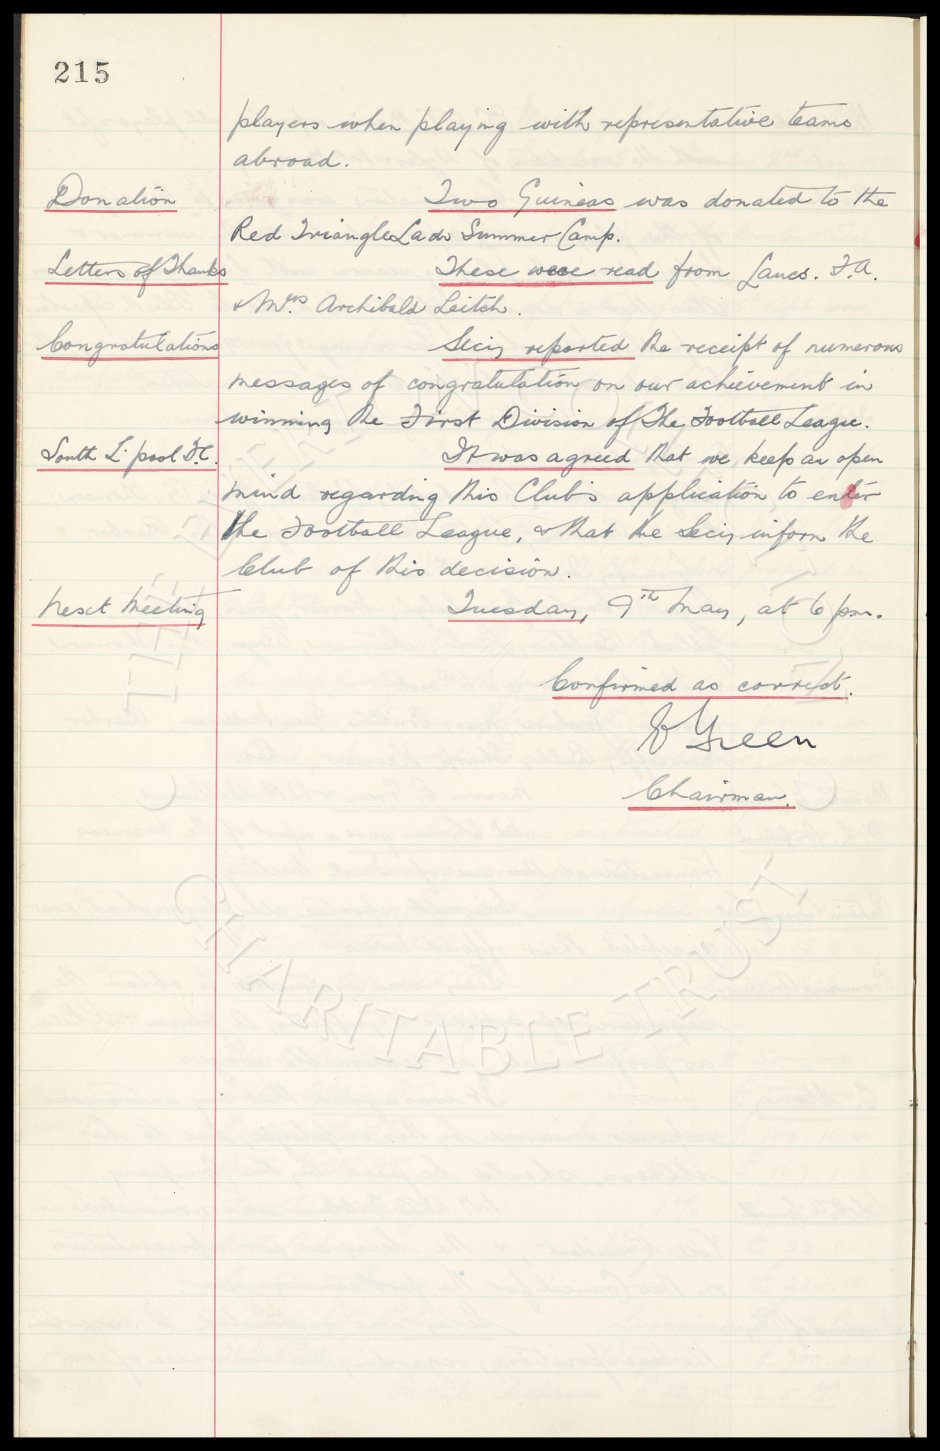 215
players when playing with representative teams
abroad.
Donation Two Guineas was donated to the
Red Triangle Lads Summer Camp.
Letters of Thanks These were read from Lancs. F.A.
& Mrs. Archibald Leitch.
Congratulations Secy reported the receipt of numerous
messages of congratulation on our achievement in
winning the First Division of The Football League.
South L'pool F.C. It was agreed that we keep an open
mind regarding this Club's application to enter
the Football League, & that the Secy inform the
Club of this decision.
Next Meeting Tuesday, 9th May, at 6 pm.
Confirmed as correct.
E Green
Chairman.
CHARITABLE TRUST